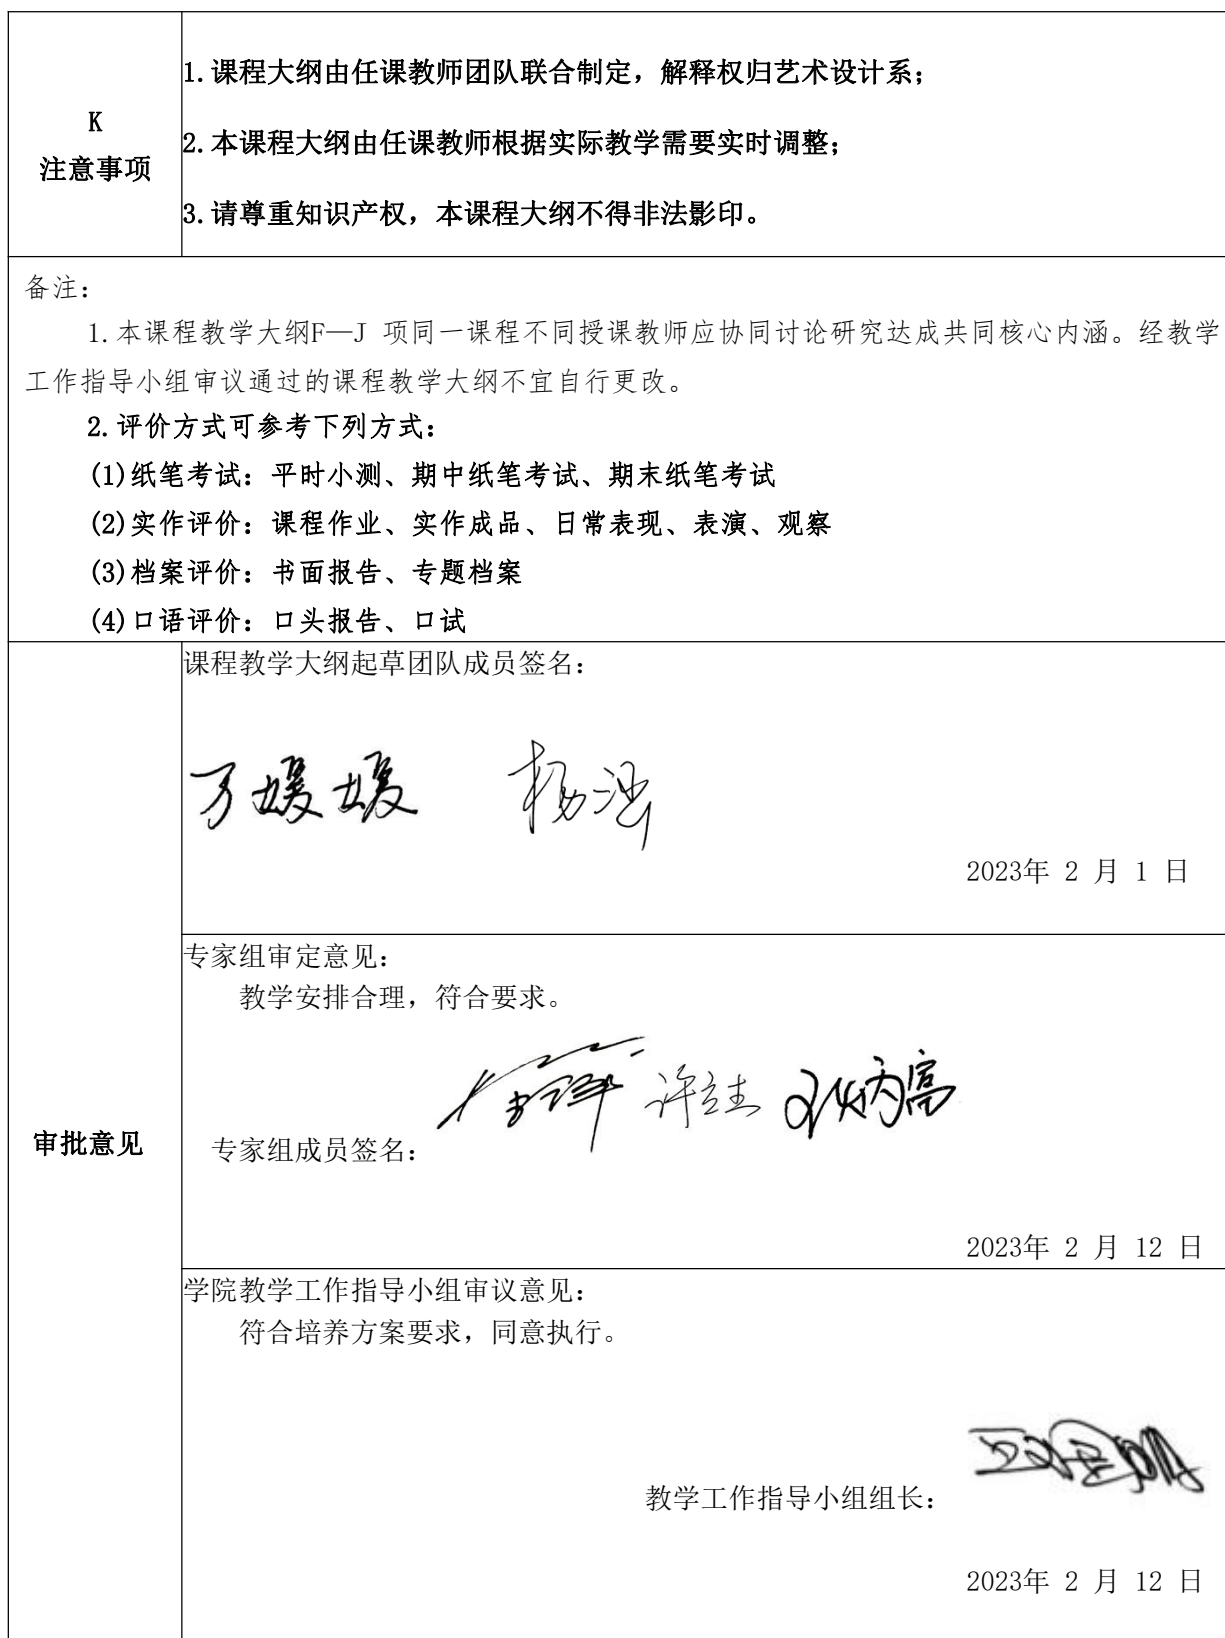 K
注意事项
1.课程大纲由任课教师团队联合制定，解释权归艺术设计系；
2.本课程大纲由任课教师根据实际教学需要实时调整；
3.请尊重知识产权，本课程大纲不得非法影印。
备注：
1.本课程教学大纲F—J 项同一课程不同授课教师应协同讨论研究达成共同核心内涵。经教学
工作指导小组审议通过的课程教学大纲不宜自行更改。
2.评价方式可参考下列方式：
(1)纸笔考试：平时小测、期中纸笔考试、期末纸笔考试
(2)实作评价：课程作业、实作成品、日常表现、表演、观察
(3)档案评价：书面报告、专题档案
(4)口语评价：口头报告、口试
审批意见
课程教学大纲起草团队成员签名：
万媛媛 杨泓
2023年 2 月 1 日
专家组审定意见：
教学安排合理，符合要求。
专家组成员签名：
2023年 2 月 12 日
学院教学工作指导小组审议意见：
符合培养方案要求，同意执行。
教学工作指导小组组长：
2023年 2 月 12 日